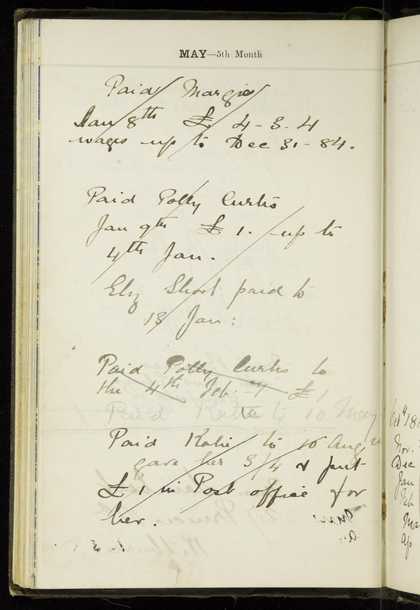 MAY—5th Month
Paid Margie
Jan 8th £ 4-3-4
wages up to Dec 31-84.
Paid Polly Curtis
Jan 9th £ 1. up to
4th Jan.
Eliz Short paid to
18 Jan:
Paid Polly Curtis to
the 4th Feb £1
Paid Katie to 10 May
Paid Katie to 10 Aug
gave her 3/4 & put
£1 in Post office for
her.
Nov.
Dec
Jan
Feb